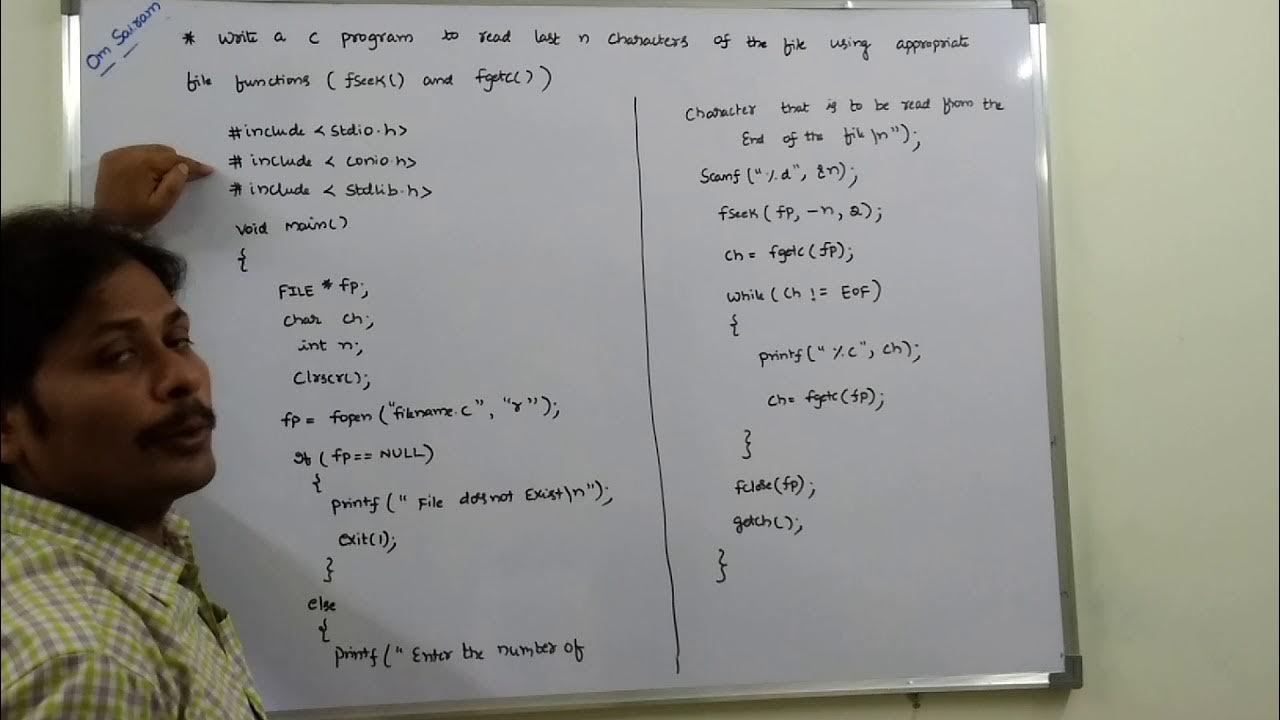 Om Sairam
* Write a C program to read last n characters of the file using appropriate
file functions ( fseek() and fgetc() )
#include < stdio.h>
# include < conio.h>
# include < stdlib.h>
void main()
{
FILE * fp;
char ch;
int n;
clrscr();
fp = fopen ("filename.c", "r");
if ( fp == NULL)
{
printf (" File does not Exist\n");
exit(1);
}
else
{
printf (" Enter the number of
Character that is to be read from the
End of the file \n");
Scanf ("%d", &n);
fseek (fp, -n, 2);
ch = fgetc (fp);
while ( ch != EOF)
{
printf (" %c", ch);
ch = fgetc (fp);
}
fclose (fp);
getch ();
}